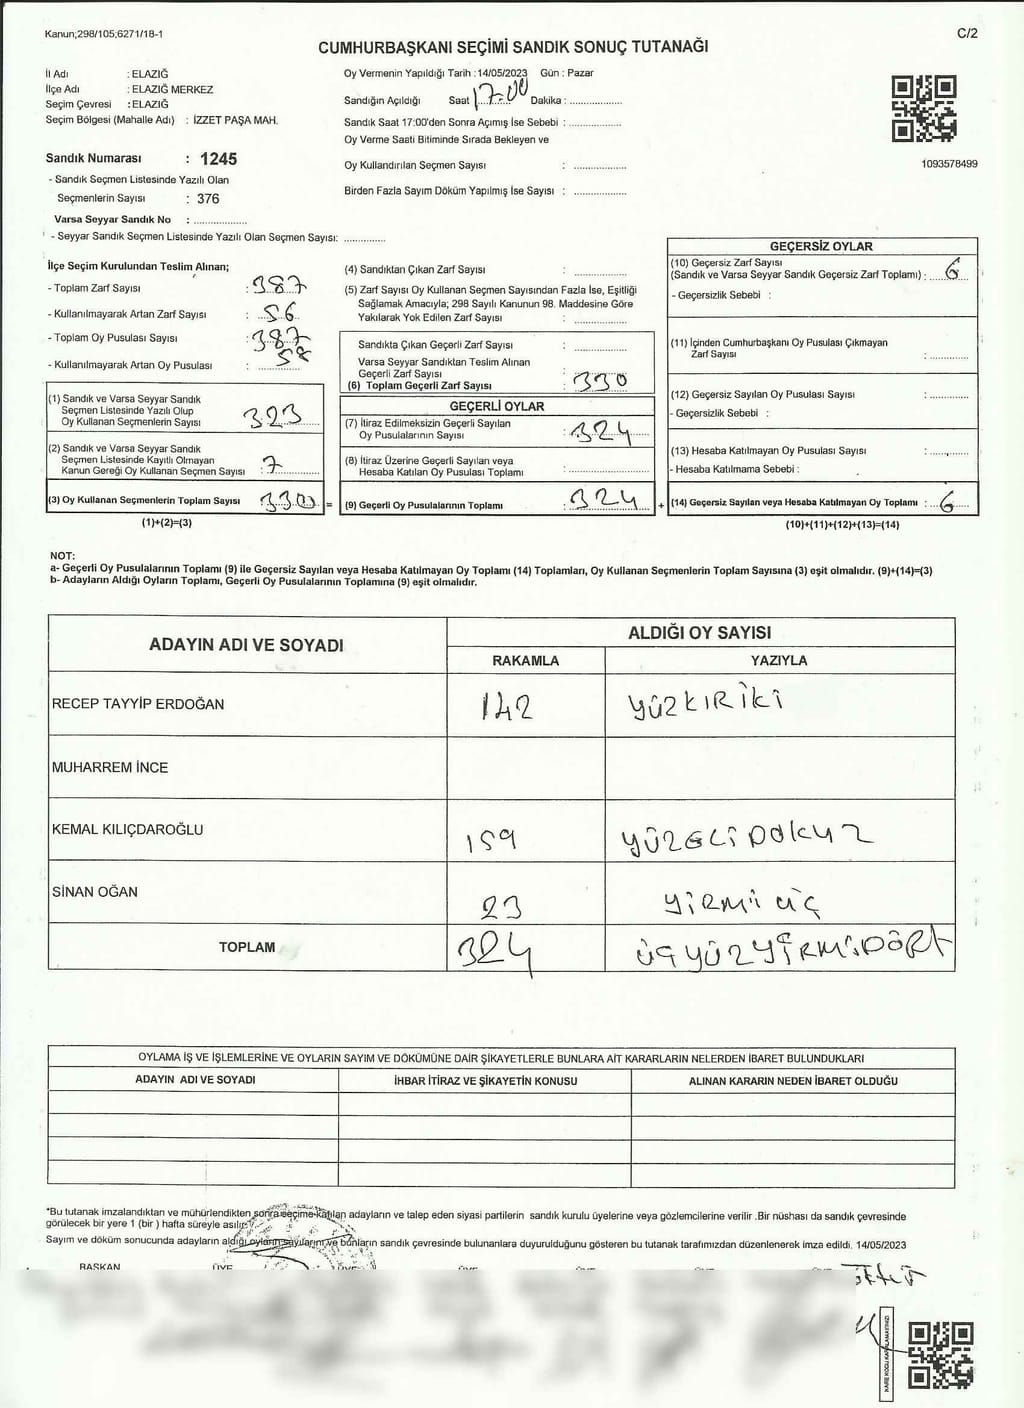 Kanun;298/105;6271/18-1
C/2
CUMHURBAŞKANI SEÇİMİ SANDIK SONUÇ TUTANAĞI
İl Adı : ELAZIĞ
İlçe Adı : ELAZIĞ MERKEZ
Seçim Çevresi : ELAZIĞ
Seçim Bölgesi (Mahalle Adı) : İZZET PAŞA MAH.
Sandık Numarası : 1245
- Sandık Seçmen Listesinde Yazılı Olan
Seçmenlerin Sayısı : 376
Varsa Seyyar Sandık No : ....................
- Seyyar Sandık Seçmen Listesinde Yazılı Olan Seçmen Sayısı: ...............
Oy Vermenin Yapıldığı Tarih : 14/05/2023 Gün : Pazar
Sandığın Açıldığı Saat 17.00 Dakika : ....................
Sandık Saat 17:00'den Sonra Açımış İse Sebebi : ....................
Oy Verme Saati Bitiminde Sırada Bekleyen ve
Oy Kullandırılan Seçmen Sayısı : ....................
Birden Fazla Sayım Döküm Yapılmış İse Sayısı : ....................
1093578499
İlçe Seçim Kurulundan Teslim Alınan;
- Toplam Zarf Sayısı : 387
- Kullanılmayarak Artan Zarf Sayısı : 56
- Toplam Oy Pusulası Sayısı : 387
- Kullanılmayarak Artan Oy Pusulası : 58
(1) Sandık ve Varsa Seyyar Sandık
Seçmen Listesinde Yazılı Olup
Oy Kullanan Seçmenlerin Sayısı 323
(2) Sandık ve Varsa Seyyar Sandık
Seçmen Listesinde Kayıtlı Olmayan
Kanun Gereği Oy Kullanan Seçmen Sayısı : 7
(3) Oy Kullanan Seçmenlerin Toplam Sayısı 330 =
(1)+(2)=(3)
(4) Sandıktan Çıkan Zarf Sayısı : ....................
(5) Zarf Sayısı Oy Kullanan Seçmen Sayısından Fazla İse, Eşitliği
Sağlamak Amacıyla; 298 Sayılı Kanunun 98. Maddesine Göre
Yakılarak Yok Edilen Zarf Sayısı : ....................
Sandıkta Çıkan Geçerli Zarf Sayısı : ....................
Varsa Seyyar Sandıktan Teslim Alınan
Geçerli Zarf Sayısı : ....................
(6) Toplam Geçerli Zarf Sayısı : 330
GEÇERLİ OYLAR
(7) İtiraz Edilmeksizin Geçerli Sayılan
Oy Pusulalarının Sayısı : 324
(8) İtiraz Üzerine Geçerli Sayılan veya
Hesaba Katılan Oy Pusulası Toplamı : ....................
(9) Geçerli Oy Pusulalarının Toplamı : 324 +
GEÇERSİZ OYLAR
(10) Geçersiz Zarf Sayısı
(Sandık ve Varsa Seyyar Sandık Geçersiz Zarf Toplamı) : 6
- Geçersizlik Sebebi :
(11) İçinden Cumhurbaşkanı Oy Pusulası Çıkmayan
Zarf Sayısı : ...............
(12) Geçersiz Sayılan Oy Pusulası Sayısı : ...............
- Geçersizlik Sebebi :
(13) Hesaba Katılmayan Oy Pusulası Sayısı : ...............
- Hesaba Katılmama Sebebi :
(14) Geçersiz Sayılan veya Hesaba Katılmayan Oy Toplamı : 6
(10)+(11)+(12)+(13)=(14)
NOT:
a- Geçerli Oy Pusulalarının Toplamı (9) ile Geçersiz Sayılan veya Hesaba Katılmayan Oy Toplamı (14) Toplamları, Oy Kullanan Seçmenlerin Toplam Sayısına (3) eşit olmalıdır. (9)+(14)=(3)
b- Adayların Aldığı Oyların Toplamı, Geçerli Oy Pusulalarının Toplamına (9) eşit olmalıdır.
ADAYIN ADI VE SOYADI
ALDIĞI OY SAYISI
RAKAMLA YAZIYLA
RECEP TAYYİP ERDOĞAN 142 YÜZKIRİKİ
MUHARREM İNCE
KEMAL KILIÇDAROĞLU 159 YÜZELİ DOKUZ
SİNAN OĞAN 23 YİRMİ ÜÇ
TOPLAM 324 ÜÇ YÜZ YİRMİ DÖRT
OYLAMA İŞ VE İŞLEMLERİNE VE OYLARIN SAYIM VE DÖKÜMÜNE DAİR ŞİKAYETLERLE BUNLARA AİT KARARLARIN NELERDEN İBARET BULUNDUKLARI
ADAYIN ADI VE SOYADI İHBAR İTİRAZ VE ŞİKAYETİN KONUSU ALINAN KARARIN NEDEN İBARET OLDUĞU
*Bu tutanak imzalandıktan ve mühürlendikten sonra seçime katılan adayların ve talep eden siyasi partilerin sandık kurulu üyelerine veya gözlemcilerine verilir .Bir nüshası da sandık çevresinde
görülecek bir yere 1 (bir ) hafta süreyle asılır.
Sayım ve döküm sonucunda adayların aldığı oyların sayılarını ve bunların sandık çevresinde bulunanlara duyurulduğunu gösteren bu tutanak tarafımızdan düzenlenerek imza edildi. 14/05/2023
BAŞKAN ÜYE
KARE KODU KARALAMAYINIZ!